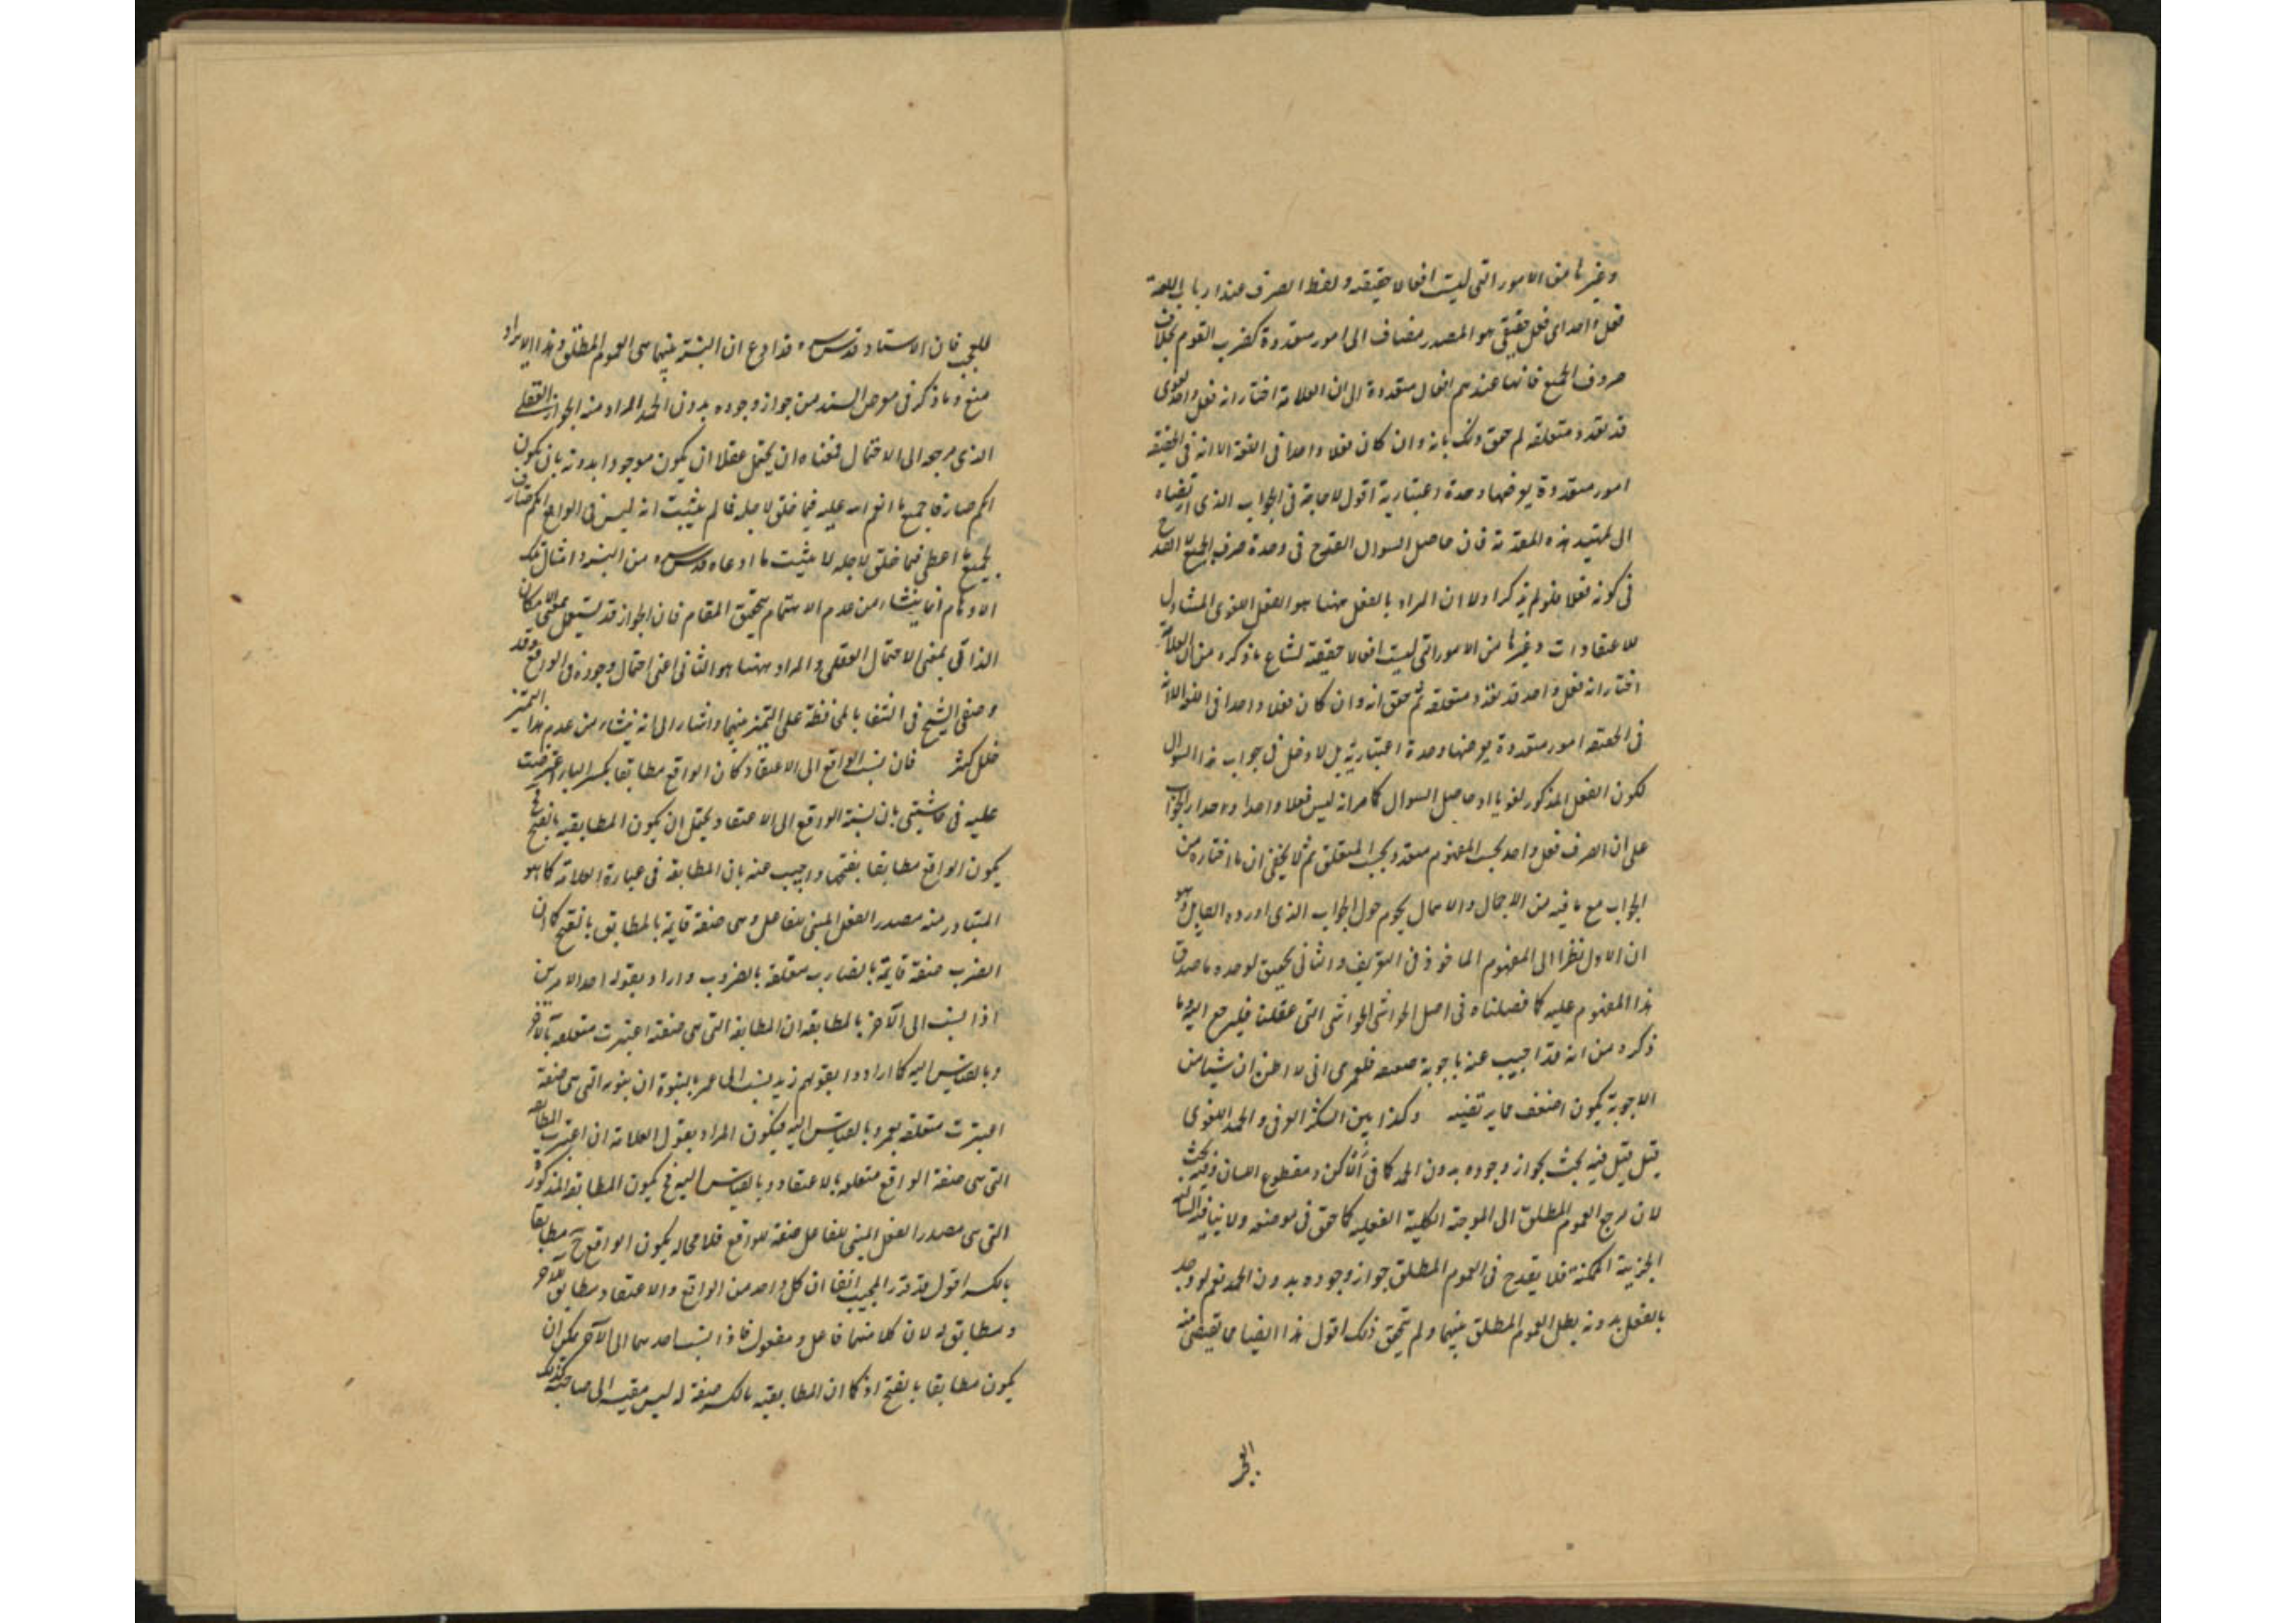 وغيرها من الامور التى ليست افعالا حقيقة ولفظ الصرف عند ارباب اللغة
فعل واحد اى فعل حقيقى هو المصدر مضاف الى امور متعددة كضرب القوم بخلاف
صروف الجميع فانها عندهم افعال متعددة الى ان العلامة اختار انه فعل واحد لغوى
قد تعدد متعلقه ثم حقق ذلك بانه وان كان فعلا واحدا فى اللغة الا انه فى الحقيقة
امور متعددة يعرضها وحدة اعتبارية اقول لا حاجة فى الجواب الذى ارتضاه
الى تمهيد هذه المقدمة فان حاصل السوال القدح فى وحدة صرف الجميع لا القدح
فى كونه فعلا فلو لم يذكر اولا ان المراد بالفعل ههنا هو الفعل اللغوى الشامل
للاعتقادات وغيرها من الامور التى ليست افعالا حقيقة لشاع ما ذكره من ان العلامة
اختار انه فعل واحد قد تعدد متعلقه ثم حقق انه وان كان فعلا واحدا فى اللغة الا انه
فى الحقيقة امور متعددة يعرضها وحدة اعتبارية بل لا دخل فى جواب هذا السوال
لكون الفعل المذكور لغويا اذ حاصل السوال كما مر انه ليس فعلا واحدا ومدار الجواب
على ان الصرف فعل واحد بحسب المفهوم متعدد بحسب المتعلق ثم لا يخفى ان ما اختاره من
الجواب مع ما فيه من الاجمال والاهمال يحوم حول الجواب الذى اورده القايل وهو
ان الاول نظرا الى المفهوم الماخوذ فى التعريف والثانى تحقيق لوحدة ما صدق
هذا المفهوم عليه كما فصلناه فى اصل الحواشى الحواشى التى علقت فليرجع اليه وما
ذكره من انه قد اجيب عنه باجوبة ضعيفة فلعمرى انى لا اظن ان شيئا من
الاجوبة يكون اضعف مما يرتضيه وكذا بين الشكر العرفى والحمد اللغوى
قيل قيل فيه بحث لجواز وجوده بدون الحمد كما فى الاكن ومقطوع اللسان وفيه بحث
لان مرجع العموم المطلق الى الموجبة الكلية الفعلية كما حقق فى موضعه ولا ينافيه السالبة
الجزئية الممكنة فلا يقدح فى العموم المطلق جواز وجوده بدون الحمد نعم لو وجد
بالفعل بدونه بطل العموم المطلق بينهما ولم يتحقق ذلك اقول هذا ايضا مما يقضى منه
العجب
للعجب فان الاستاد قدس سره قد ادعى ان النسبة بينهما هى العموم المطلق وهذا الايراد
منع وما ذكر فى معرض السند من جواز وجوده بدون الحمد المراد منه الجواز العقلى
الذى مرجعه الى الاحتمال فمعناه ان يحتمل عقلا ان يكون موجودا بدونه بان يكون
ابكم صارفا جميع ما انعم الله عليه فيما خلق لاجله فما لم يثبت انه ليس فى الواقع ابكم صارف
لجميع ما اعطى فيما خلق لاجله لا يثبت ما ادعاه قدس سره من النسبة وامثال تلك
الاوهام انما ينشاء من عدم الاهتمام بتحقيق المقام فان الجواز قد يستعمل بمعنى الامكان
الذاتى بمعنى الاحتمال العقلى والمراد ههنا هو الثانى اعنى احتمال وجوده فى الواقع وقد
وصى الشيخ فى الشفا بالمحافظة على التميز بينهما واشار الى انه ينشاء من عدم هذا التميز
خلل كثير فان نسب الواقع الى الاعتقاد كان الواقع مطابقا بكسر الباء اعترضت
عليه فى حاشيتى بان نسبة الواقع الى الاعتقاد يحتمل ان يكون المطابقية بالفتح فح
يكون الواقع مطابقا بفتحها واجيب عنه بان المطابقة فى عبارة العلامة كما هو
المتبادر منه مصدر الفعل المبنى للفاعل وهى صفة قايمة بالمطابق بالفتح كما ان
الضرب صفة قايمة بالضارب متعلقة بالمضروب واراد بقوله احد الامرين
اذا نسب الى الآخر بالمطابقة ان المطابقة التى هى صفته اعتبرت متعلقة بالآخر
وبالقياس اليه كما ارادوا بقولهم زيد نسب الى عمر بالبنوة ان بنوته التى هى صفته
اعتبرت متعلقة بعمرو بالقياس اليه فيكون المراد بقول العلامة ان اعتبرت المطابقة
التى هى صفة الواقع متعلقة بالاعتقاد وبالقياس اليه فح يكون المطابقة المذكورة
التى هى مصدر الفعل المبنى للفاعل صفة للواقع فلا محالة يكون الواقع ح مطابقا
بالكسر اقول قد قرر المجيب انفا ان كل واحد من الواقع والاعتقاد مطابق للآخر
ومطابق له لان كلا منهما فاعل ومفعول فاذا نسب احدهما الى الآخر يمكن ان
يكون مطابقا بالفتح اذ كما ان المطابقية بالكسر صفة له ليس مقيسه الى صاحبه كذلك